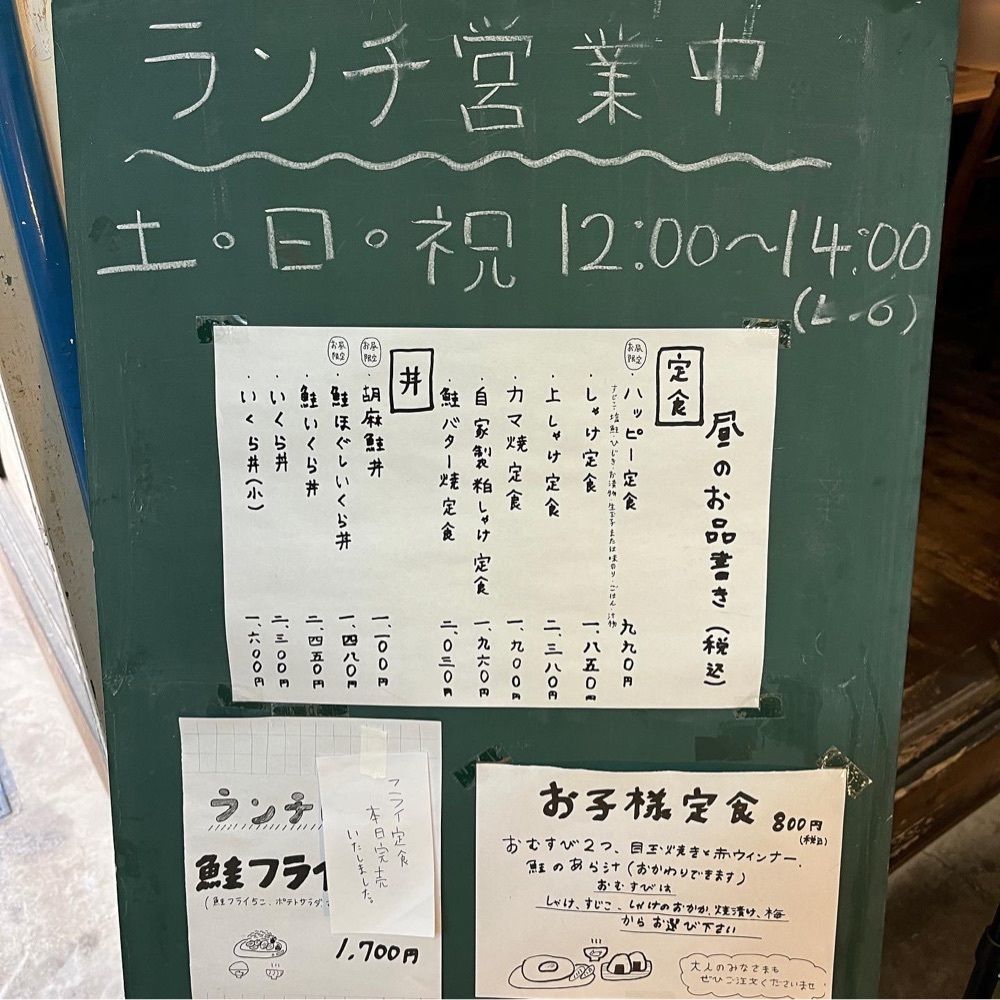 ランチ営業中
土・日・祝 12:00〜14:00
(L.O)
昼のお品書き(税込)
定食
お昼限定
・ハッピー定食 九九〇円
すじこ・塩鮭・ひじき・お漬物・生玉子または味付のり・ごはん・汁物
・しゃけ定食 一、八五〇円
・上しゃけ定食 二、三八〇円
・カマ焼定食 一、九〇〇円
・自家製粕しゃけ定食 一、九六〇円
・鮭バター焼定食 二、〇三〇円
丼
お昼限定
・胡麻鮭丼 一、一〇〇円
お昼限定
・鮭ほぐしいくら丼 一、四八〇円
・鮭いくら丼 二、四五〇円
・いくら丼 二、三〇〇円
・いくら丼(小) 一、六〇〇円
ランチ
鮭フライ
(鮭フライ5こ、ポテトサラダ、
1,700円
フライ定食
本日完売
いたしました。
お子様定食 800円
(税込)
おむすび2つ、目玉焼きと赤ウインナー、
鮭のあら汁(おかわりできます)
おむすびは
しゃけ、すじこ、しゃけのおかか、焼漬け、梅
からお選び下さい
大人のみなさまも
ぜひご注文くださいませ